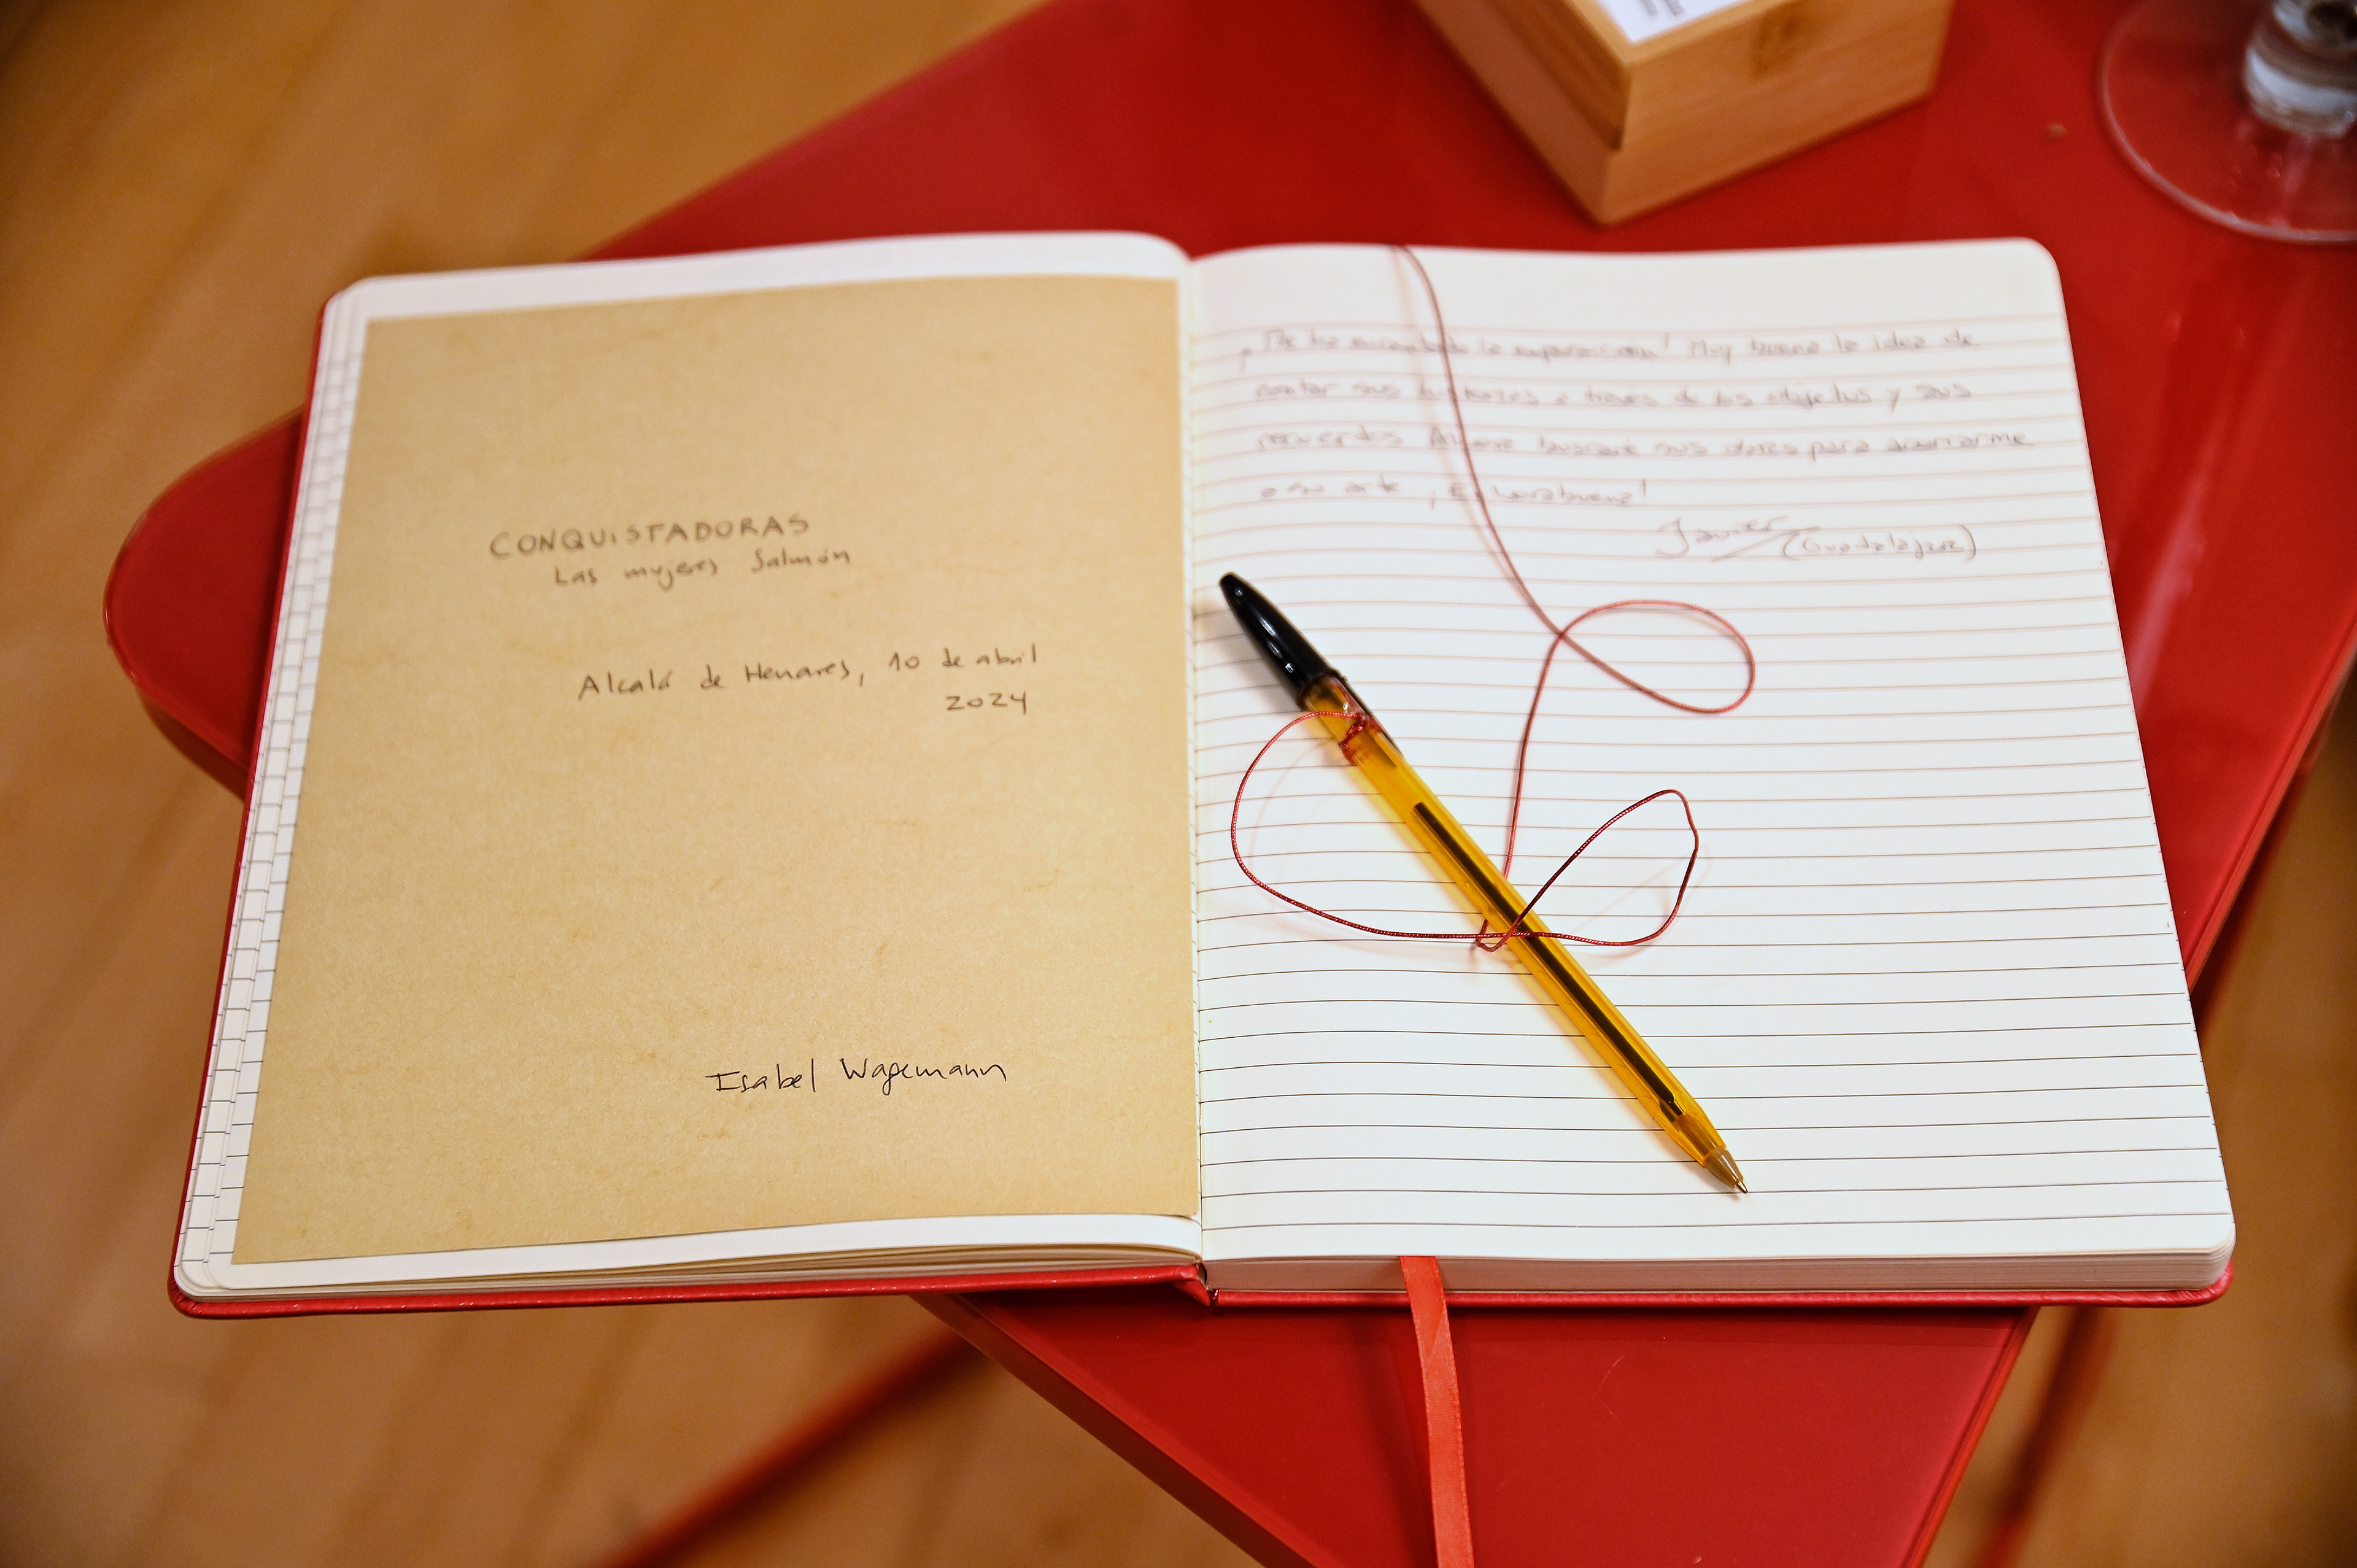 CONQUISTADORAS
Las mujeres Salmón
Alcalá de Henares, 10 de abril
2024
Isabel Wagemann
¡Me ha encantado la exposición! Muy buena la idea de
contar sus historias a través de los objetos y sus
recuerdos. buscaré sus obras para acercarme
a su arte ¡Enhorabuena!
Javier
(Guadalajara)